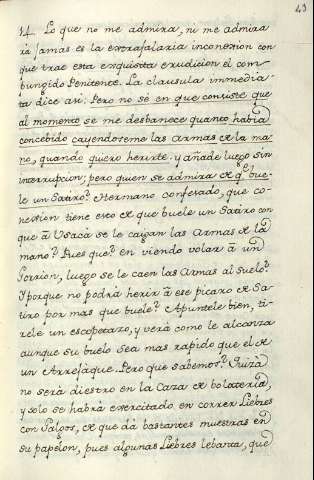 43
14. Lo que no me admira, ni me admira
rà jamas es la extrafalaria inconexion con
que trae esta exquisita erudicion el com
bungido Penitente. La clausula immedia-
ta dice asi: Pero no sè en que consiste que
al momento se me desbanece quanto habia
concebido cayendoseme las armas de la ma-
no, quando quiero herirte. y añade luego sin
interrupcion; pero quien se admira de q.e bue-
le un Satiro? Hermano confesado, que co-
nexion tiene esto de que buele un Satiro con
que à Usaca se le caygan las armas de la
mano? Pues que? en viendo volar à un
Gorrion, luego se le caen las armas al suelo?
Y porque no podrà herir à ese picaro de Sa-
tiro por mas que buele? Apuntele bien, ti-
rele un escopetazo, y verà como le alcanza
aunque su buelo sea mas rapido que el de
un Arrefaque. Pero que sabemos? Quizà
no serà diestro en la Caza de bolateria,
y solo se habrà exercitado en correr Liebres
con Galgos, de que dà bastantes muestras en
su papelon, pues algunas Liebres lebanta, que